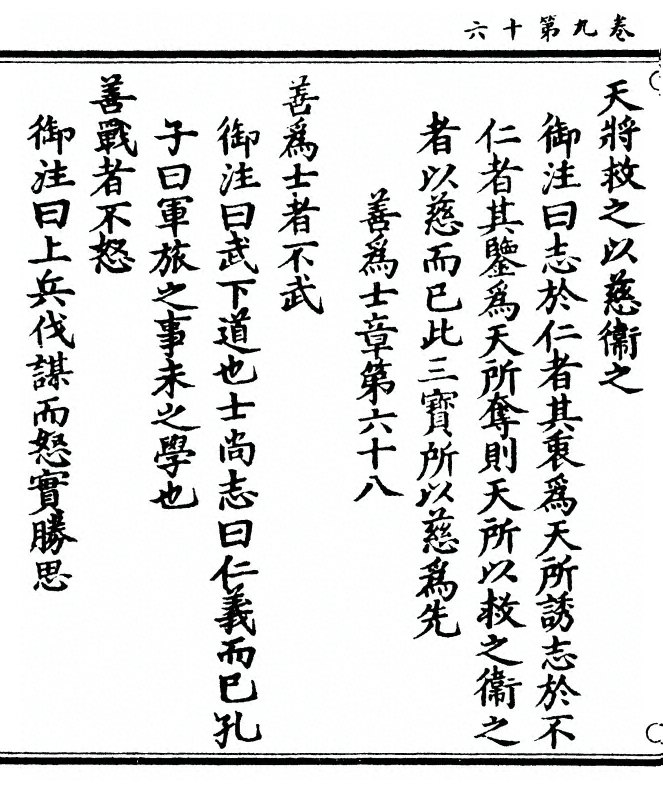 卷九第十六
天將救之以慈衞之
御注曰志於仁者其衷爲天所誘志於不
仁者其鑒爲天所奪則天所以救之衞之
者以慈而已此三寶所以慈爲先
善爲士章第六十八
善爲士者不武
御注曰武下道也士尚志曰仁義而已孔
子曰軍旅之事未之學也
善戰者不怒
御注曰上兵伐謀而怒實勝思